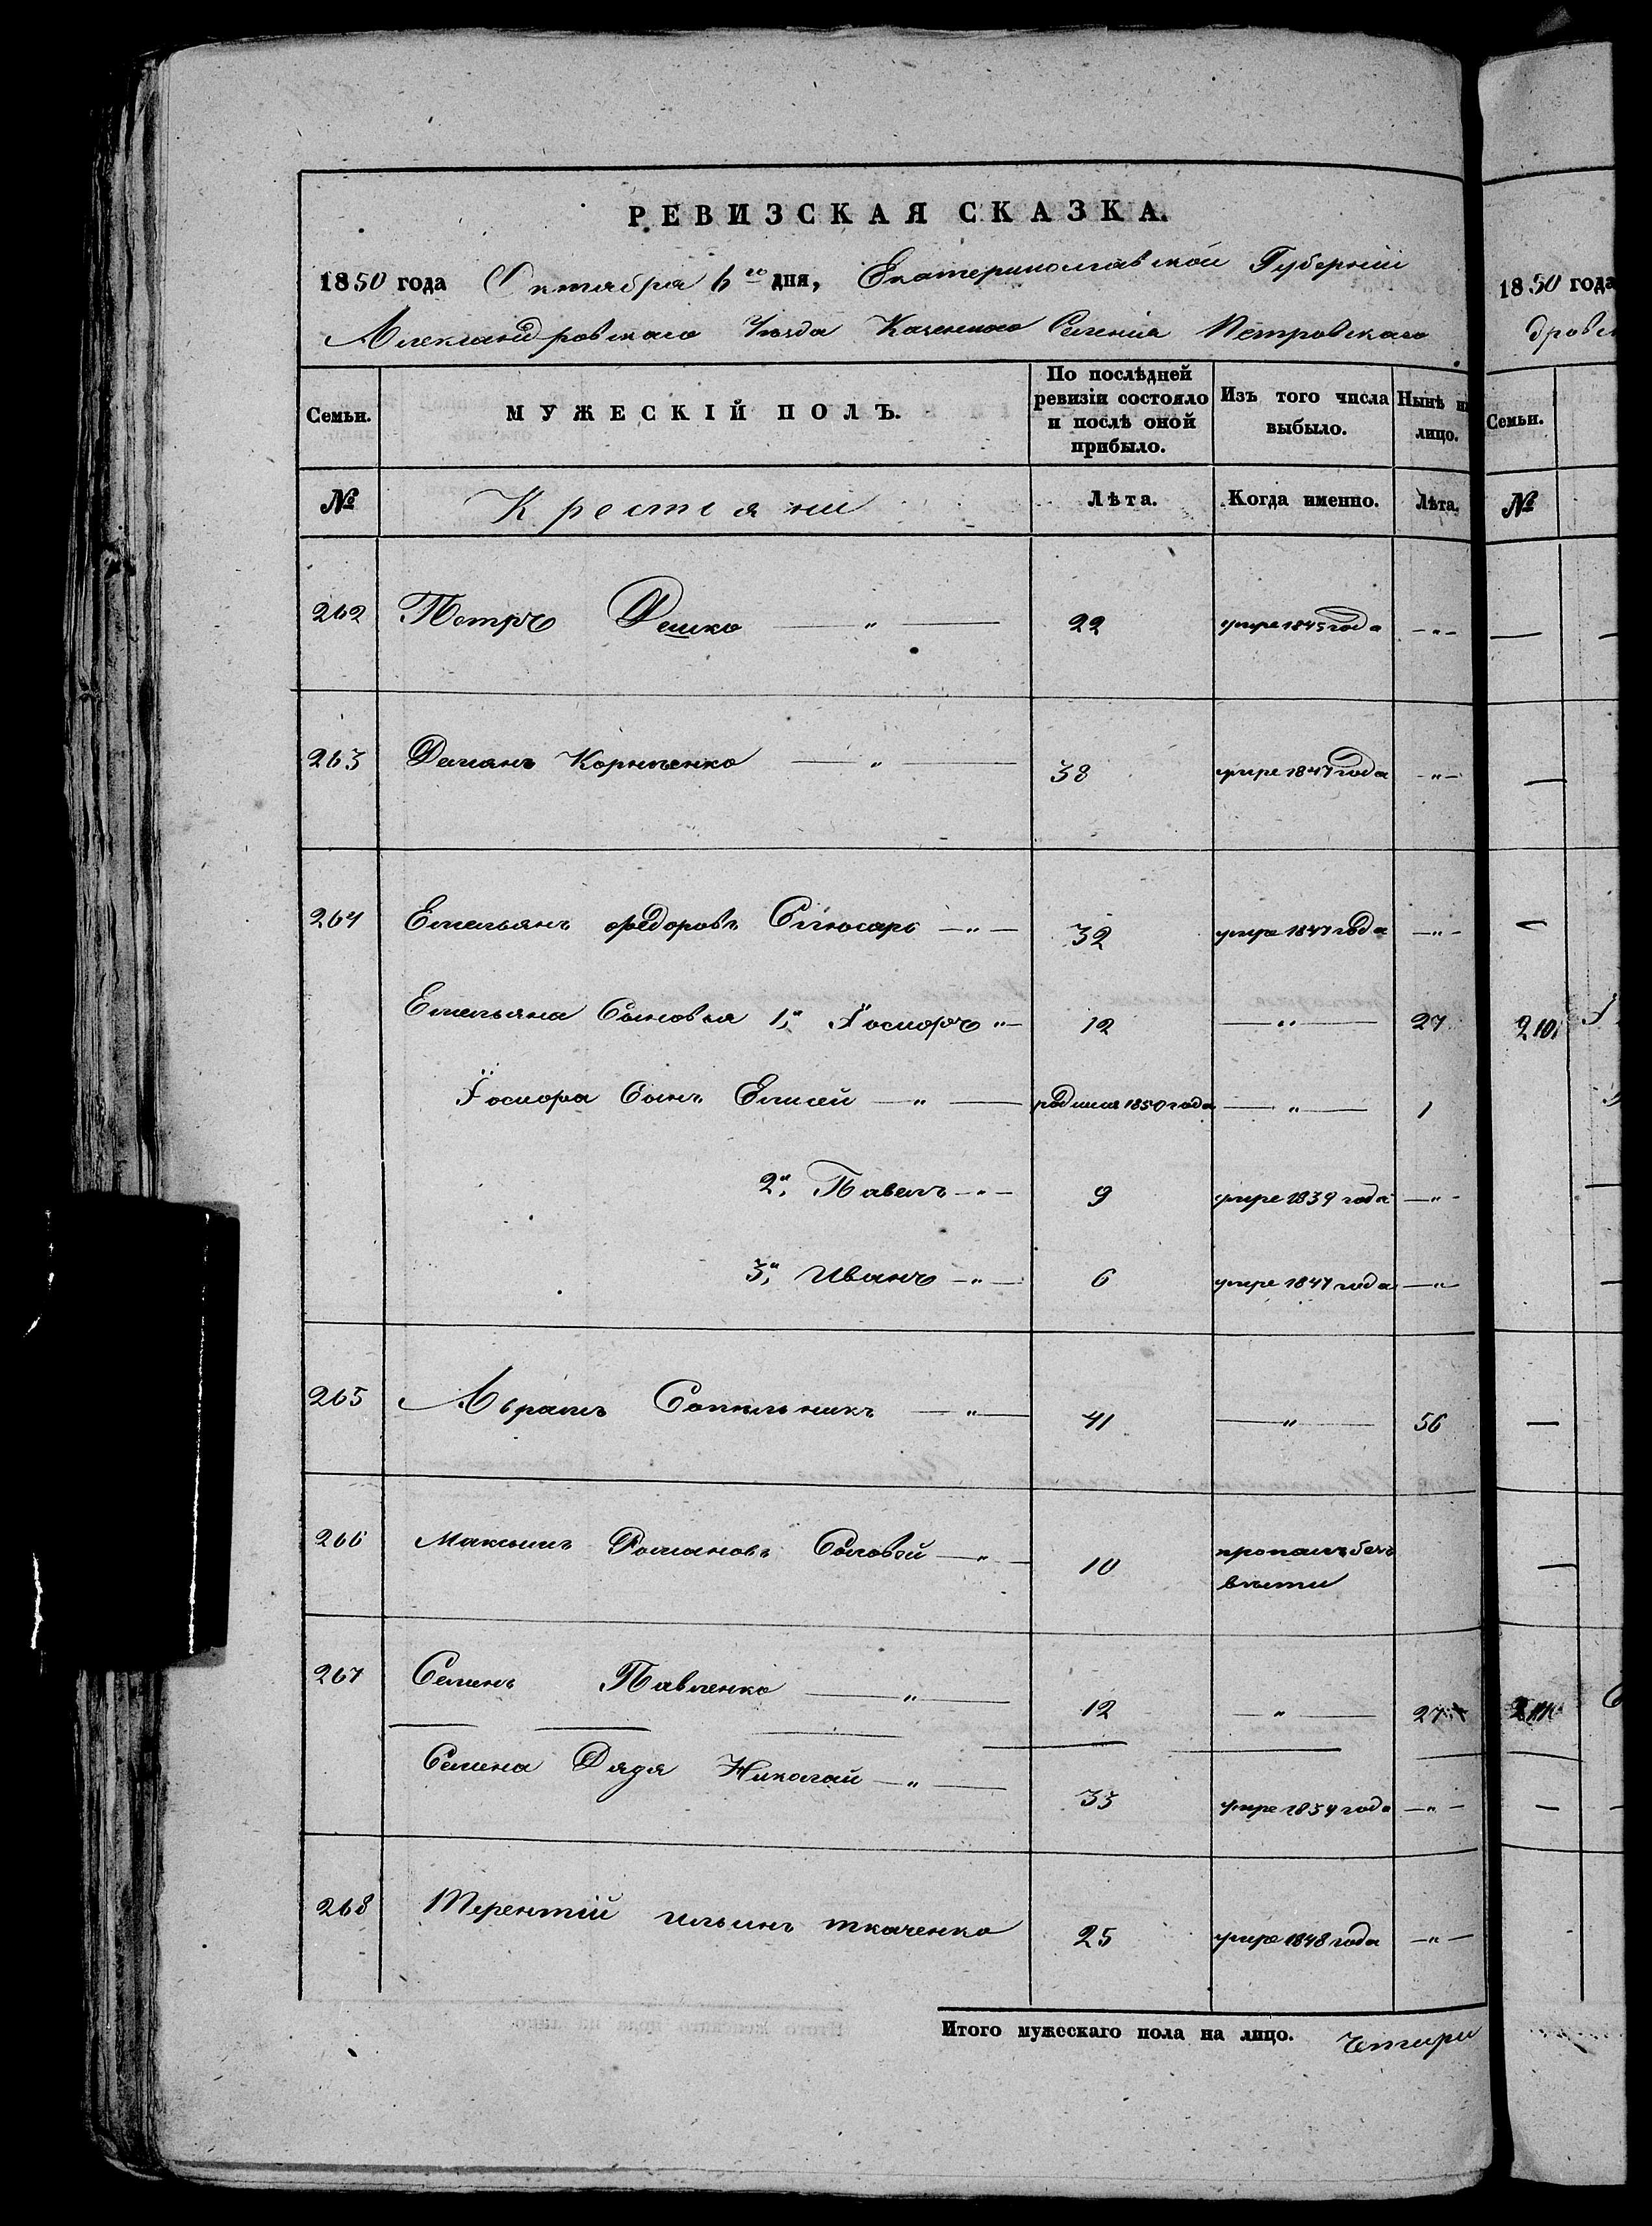 РЕВИЗСКАЯ СКАЗКА.
1850 года Октября 6го дня, Екатеринославской Губерніи
Александровскаго Уезда Казеннаго Селенія Петровскаго
Семьи. МУЖЕСКІЙ ПОЛЪ. По послѣдней ревизіи состояло и послѣ оной прибыло. Изъ того числа выбыло. Нынѣ на лицо.
№ Крестьяни Лѣта. Когда именно. Лѣта.
262 Петръ Дешко — " — 22 умре 1845 года — " —
263 Демянъ Корниенко — " — 38 умре 1847 года — " —
264 Емельянъ Федоровъ Слюсарь — " — 32 умре 1847 года — " —
Емельяна Сыновья 1й, Їосифъ " — 12 — " — 27
Їосифа Сынъ Елисей — " — родился 1850 года — " — 1
2й, Павелъ — " — 9 умре 1839 года — " —
3й, Иванъ — " — 6 умре 1847 года — "
265 Абрамъ Сопильникъ — " — 41 — " — 56
266 Максимъ Романовъ Соловей — " — 10 пропалъ безъ
вѣсти
267 Семенъ Павленко — " — 12 — " — 27
Семена Дядя Николай — " — 33 умре 1834 года — " —
268 Терентій Ильинъ Ткаченко 25 умре 1848 года — " —
Итого мужескаго пола на лицо. Четыри
1850 года
дровск
Семьи.
№
210
211